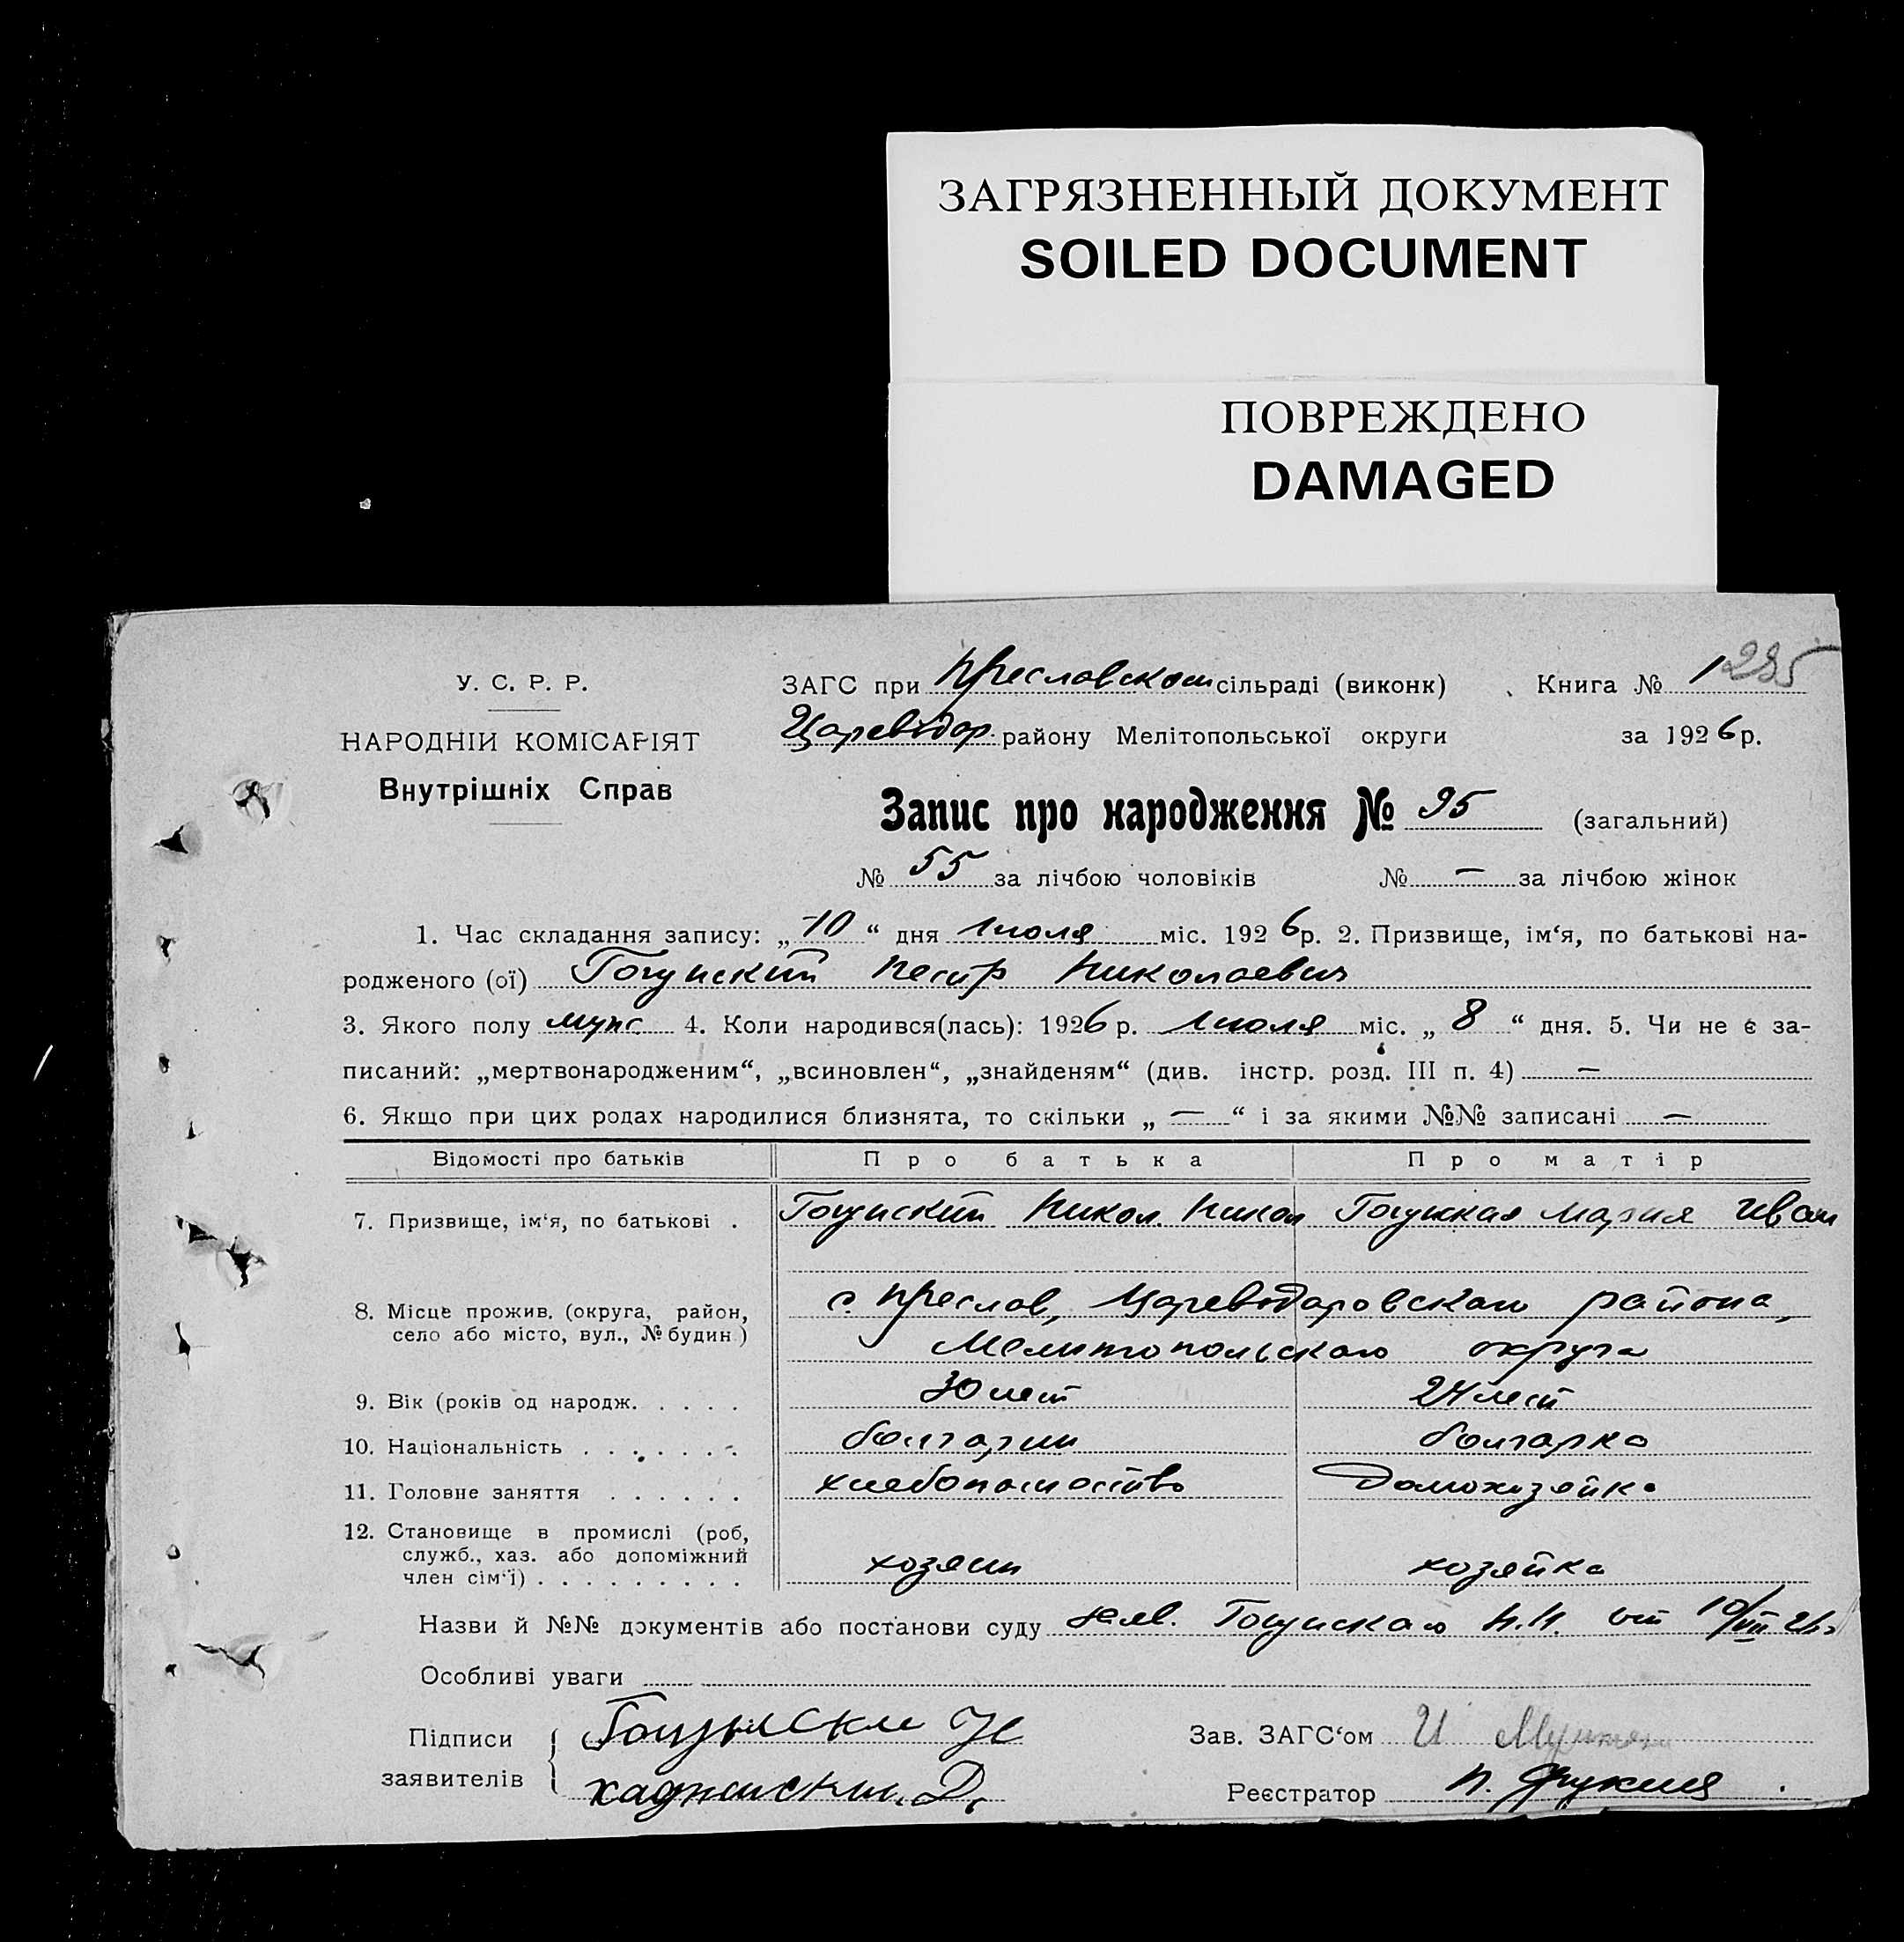 ЗАГРЯЗНЕННЫЙ ДОКУМЕНТ
SOILED DOCUMENT
ПОВРЕЖДЕНО
DAMAGED
У. С. Р. Р.
НАРОДНІЙ КОМІСАРІЯТ
Внутрішніх Справ
ЗАГС при Преславском сільраді (виконк) Книга № 1 295
Цареводар. району Мелітопольської округи за 1926 р.
Запис про народження № 95 (загальний)
№ 55 за лічбою чоловіків № — за лічбою жінок
1. Час складання запису: „10“ дня Июля міс. 1926 р. 2. Призвище, ім‘я, по батькові на-
родженого (ої) Петр Николаевич
3. Якого полу муж. 4. Коли народився(лась): 1926 р. Июля міс. „8“ дня. 5. Чи не є за-
писаний: „мертвонародженим“, „всиновлен“, „знайденям“ (див. інстр. розд. III п. 4) —
6. Якщо при цих родах народилися близнята, то скільки „—“ і за якими №№ записані —
Відомості про батьків Про батька Про матір
7. Призвище, ім‘я, по батькові . Никол. Никол Мария Иван
8. Місце прожив. (округа, район, с. Преслав, Цареводаровского района,
село або місто, вул., № будин.) Мелитопольского округа
9. Вік (років од народж. . . . . 30 лет 24 лет
10. Національність . . . . . . . болгарин болгарка
11. Головне заняття . . . . . . хлебопашество Домохозяйка
12. Становище в промислі (роб,
служб., хаз. або допоміжний
член сім‘ї) . . . . . . . . . хозяин хозяйка
Назви й №№ документів або постанови суду заяв. Н.Н. от 10/VII 26 г.
Особливі уваги
Підписи
заявителів
Зав. ЗАГС‘ом И
Реєстратор